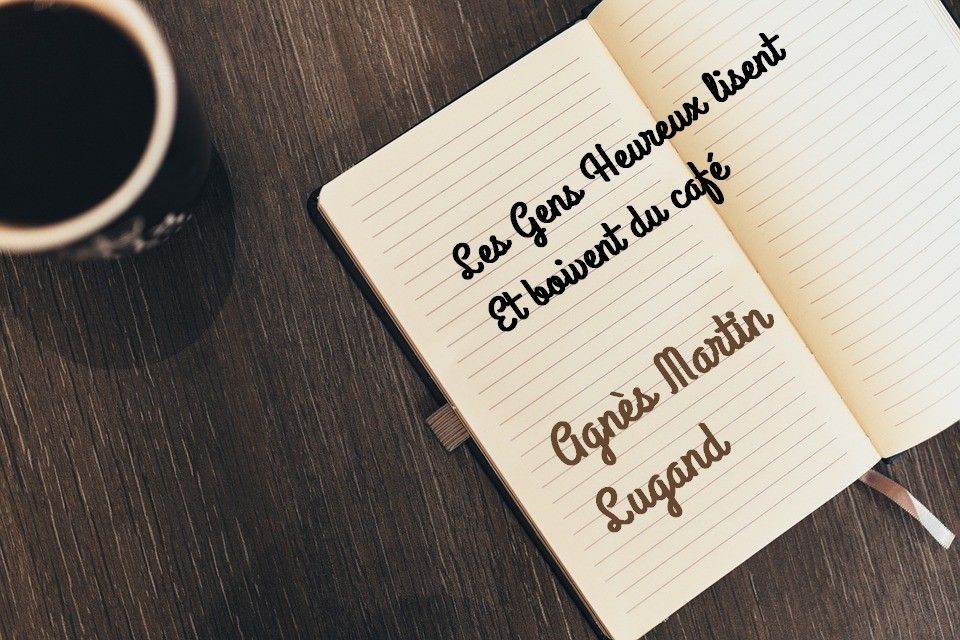 Les Gens Heureux lisent
Et boivent du café
Agnès Martin
Lugand